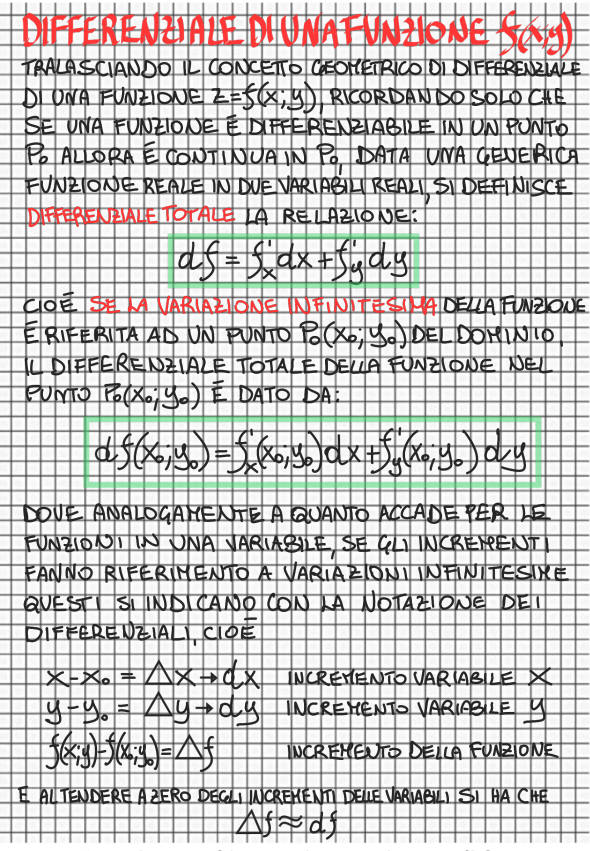 DIFFERENZIALE DI UNA FUNZIONE f(x;y)
TRALASCIANDO IL CONCETTO GEOMETRICO DI DIFFERENZIALE
DI UNA FUNZIONE Z=f(x;y), RICORDANDO SOLO CHE
SE UNA FUNZIONE É DIFFERENZIABILE IN UN PUNTO
P₀ ALLORA É CONTINUA IN P₀, DATA UNA GENERICA
FUNZIONE REALE IN DUE VARIABILI REALI, SI DEFINISCE
DIFFERENZIALE TOTALE LA RELAZIONE:
df = f'ₓ dx + f'ᵧ dy
CIOÉ SE LA VARIAZIONE INFINITESIMA DELLA FUNZIONE
É RIFERITA AD UN PUNTO P₀(x₀; y₀) DEL DOMINIO,
IL DIFFERENZIALE TOTALE DELLA FUNZIONE NEL
PUNTO P₀(x₀; y₀) É DATO DA:
df(x₀; y₀) = f'ₓ(x₀; y₀) dx + f'ᵧ(x₀; y₀) dy
DOVE ANALOGAMENTE A QUANTO ACCADE PER LE
FUNZIONI IN UNA VARIABILE, SE GLI INCREMENTI
FANNO RIFERIMENTO A VARIAZIONI INFINITESIME
QUESTI SI INDICANO CON LA NOTAZIONE DEI
DIFFERENZIALI, CIOÉ
x - x₀ = △x → dx INCREMENTO VARIABILE X
y - y₀ = △y → dy INCREMENTO VARIABILE y
f(x;y) - f(x₀;y₀) = △f INCREMENTO DELLA FUNZIONE
E AL TENDERE A ZERO DEGLI INCREMENTI DELLE VARIABILI SI HA CHE
△f ≈ df